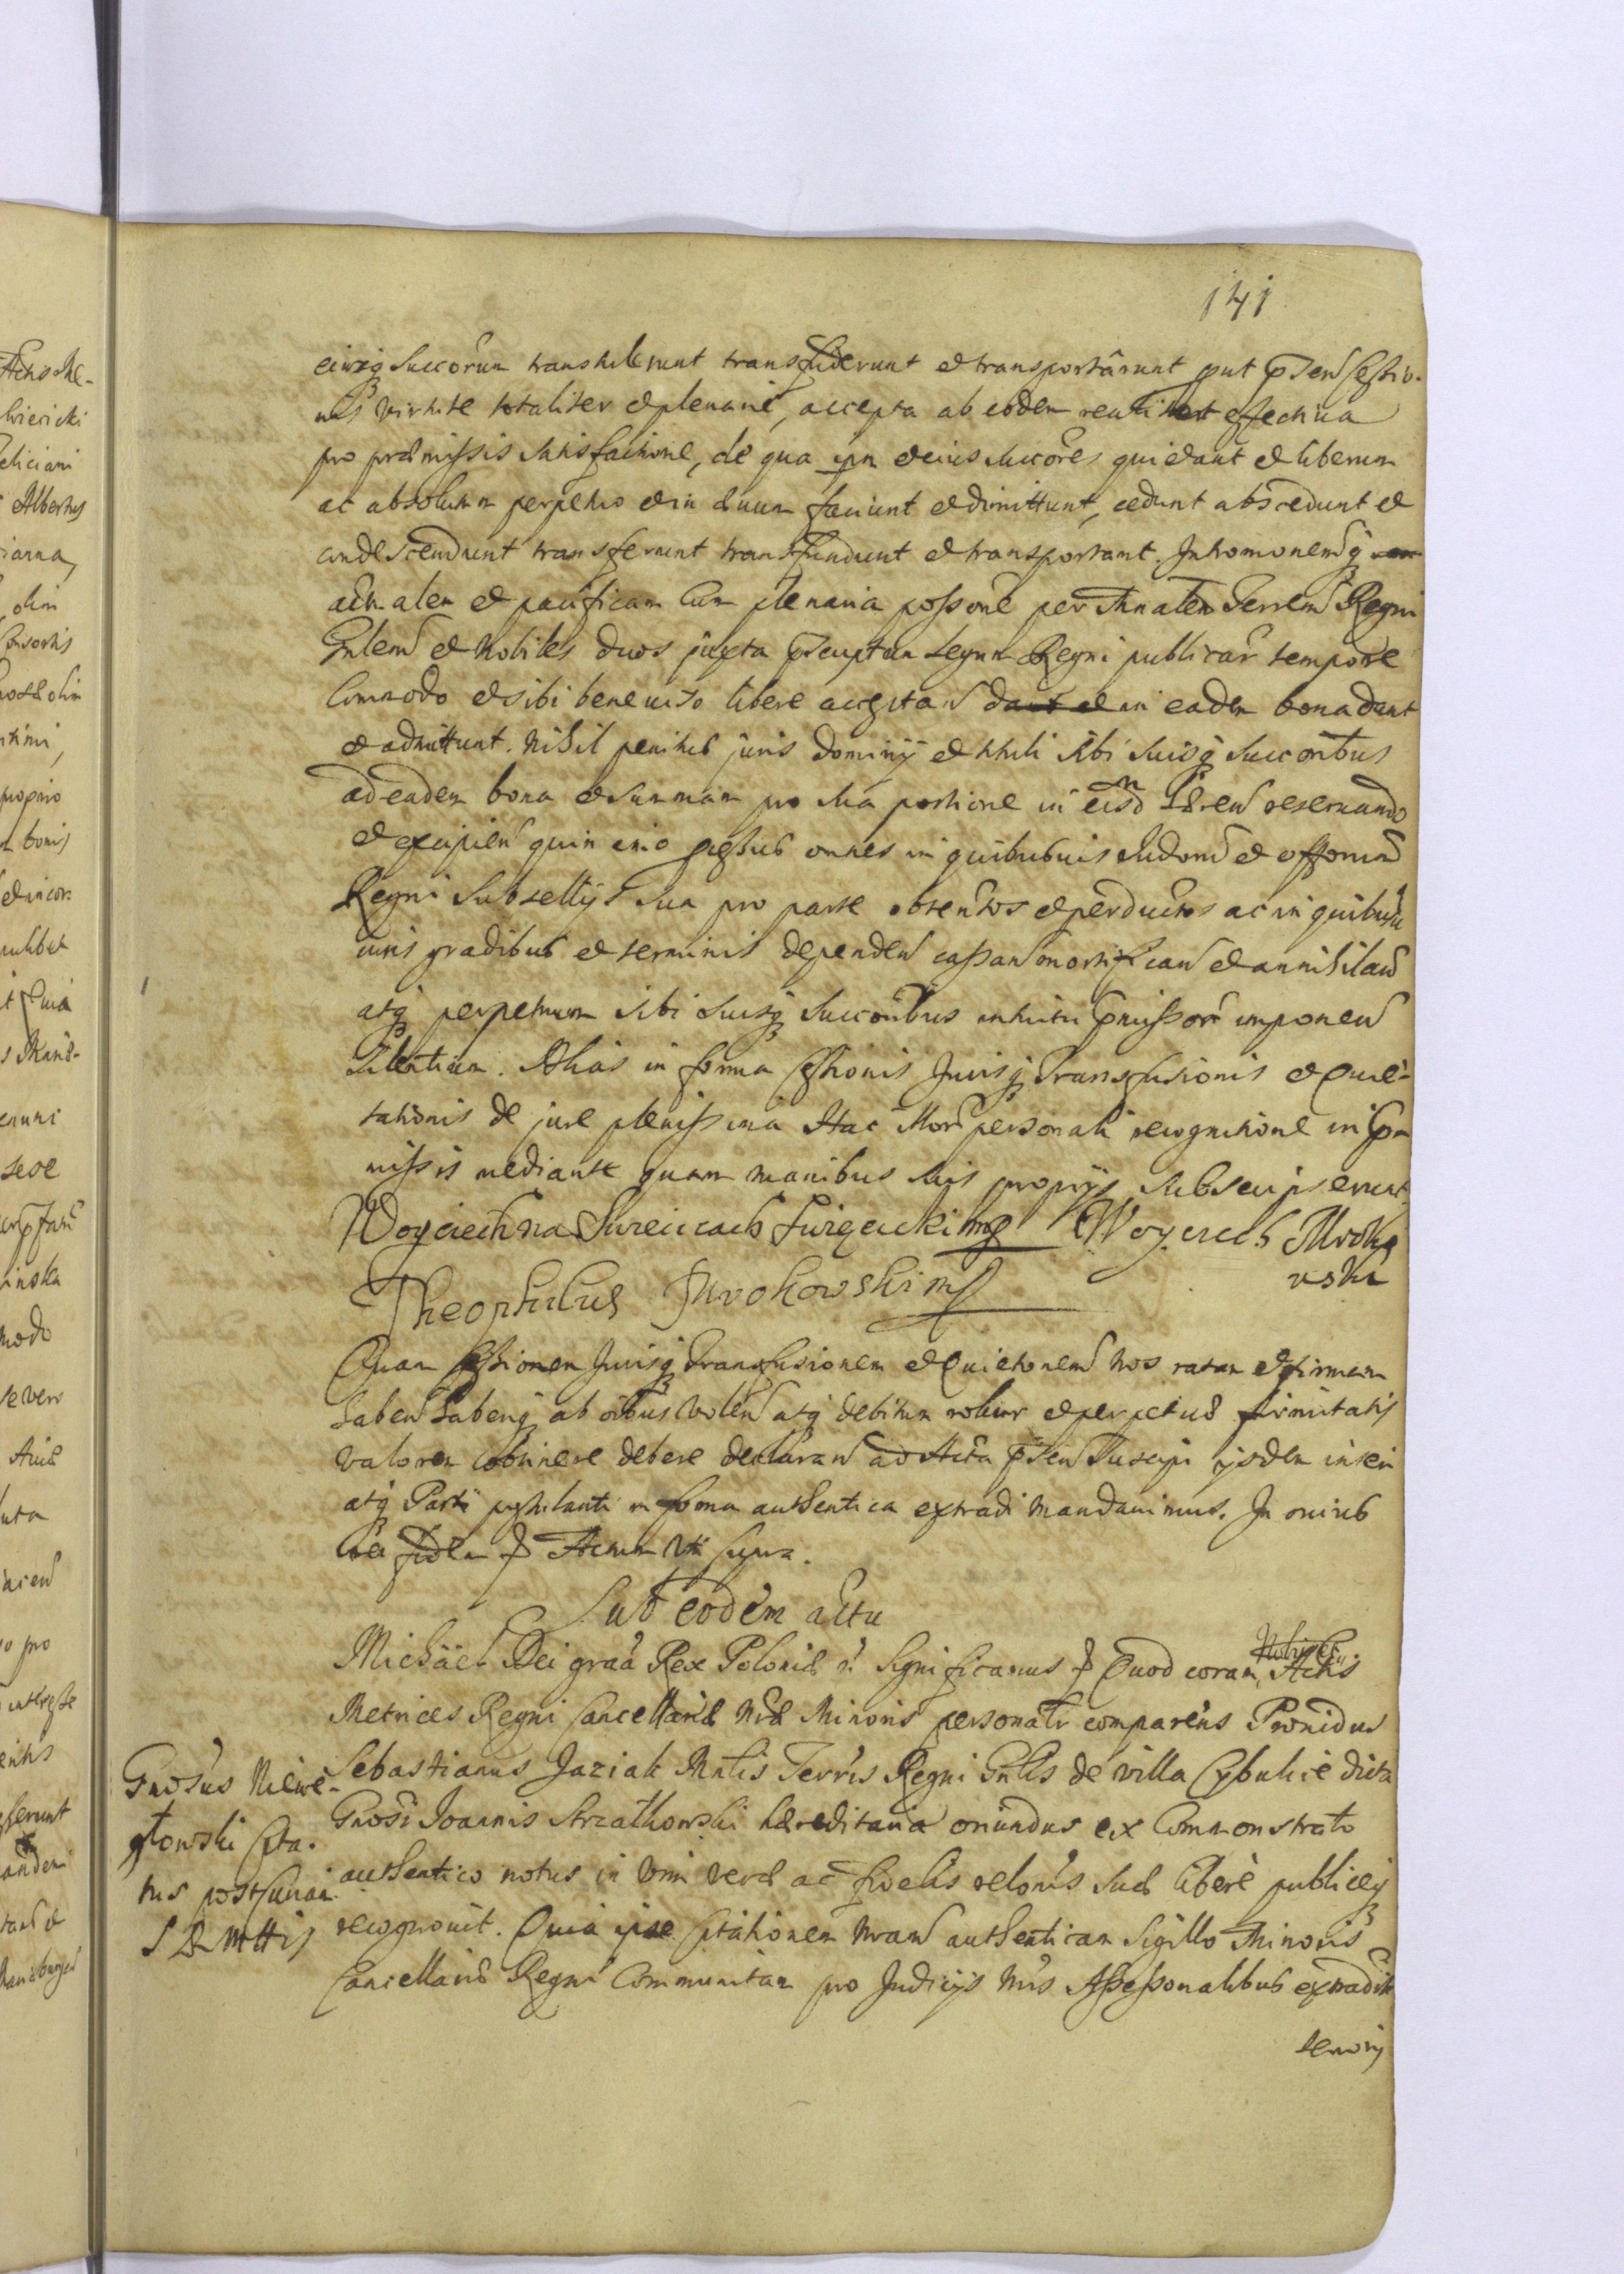 141
eiusq Succorum transtulerunt transfuderunt et transportârunt put pnsen Cessio-
nis virtute totaliter et plenarie, accepta ab eodem reali et effectiua
pro præmissis satisfactione, de qua ipm et eius succores quietant et liberum
ac absolutum perpetuo et in æuum faciunt et dimittunt, cedunt abscedunt et
condescendunt transferunt transfundunt et transportant. Intromonemq
actualem et pacificam cum plenaria possone per Mnalem Terrem Regni
Gnlem et Nobiles duos juxta pscriptum Legum Regni publicar tempore
Commodo et sibi beneuiso libere acceptan dant et in eadem bona dant
et admittunt. Nihil penitus juris Dominij et tituli sibi suisq succoribus
ad eadem bona et Summam pro sua portione in eisdm hæren reseruando
et excipien quin imo pcessus omnes in quibusuis Judom et officiorum
Regni Subsellijs sua pro parte obtentos et perductos ac in quibusuis
iuris gradibus et terminis dependen cassan mortifican et annihilan
atq perpetuum sibi suisq Succoribus intuitu pmissor imponen
silentium. Alias in forma Cessionis Jurisq Transfusionis et Quie-
tationis de jure plenissima Hac Mor personali recognitione in præ-
missis mediante quam manibus suis proprijs subscripserunt
Woyciech na Swiecicach Swięcicki mp Woyciech Mroko
wski
Theophilus Mrokowski mp
Quam Cessionem Jurisq Transfusionem et Quietonem nos ratam et firmam
haben haberiq ab oibus volen atq debitum robur et perpetuæ firmitatis
valorem obtinere debere declaran ad Acta pnsen suscipi ijsdem inseri
atq Parti postulanti in forma authentica extradi mandauimus. In cuius
rei fidem & Actum vt supra.
Sub eodem actu
Michäel Dei graa Rex Poloniæ & Significamus & Quod coram Actis
Metrices Regni Cancellariæ Nræ Minoris personatr comparens Prouidus
Sebastianus Jaziak Mnlis Terris Regni Gnlis de villa Cybulice dicta
Gnosi Joannis Strzałkowski hæreditaria oriundus ex Commonstrato
authentico notus in vim veræ ac fidelis relonis suæ liberè publiceq
recognouit. Quia ipse Citationem Nram authenticam Sigillo Minoris
Cancellariæ Regni Communitam pro Judicijs Nris Assessorialibus extradit
tenoris
Gnosus Niewe-
głowski Cita-
tus post Curiam
S R Mttis